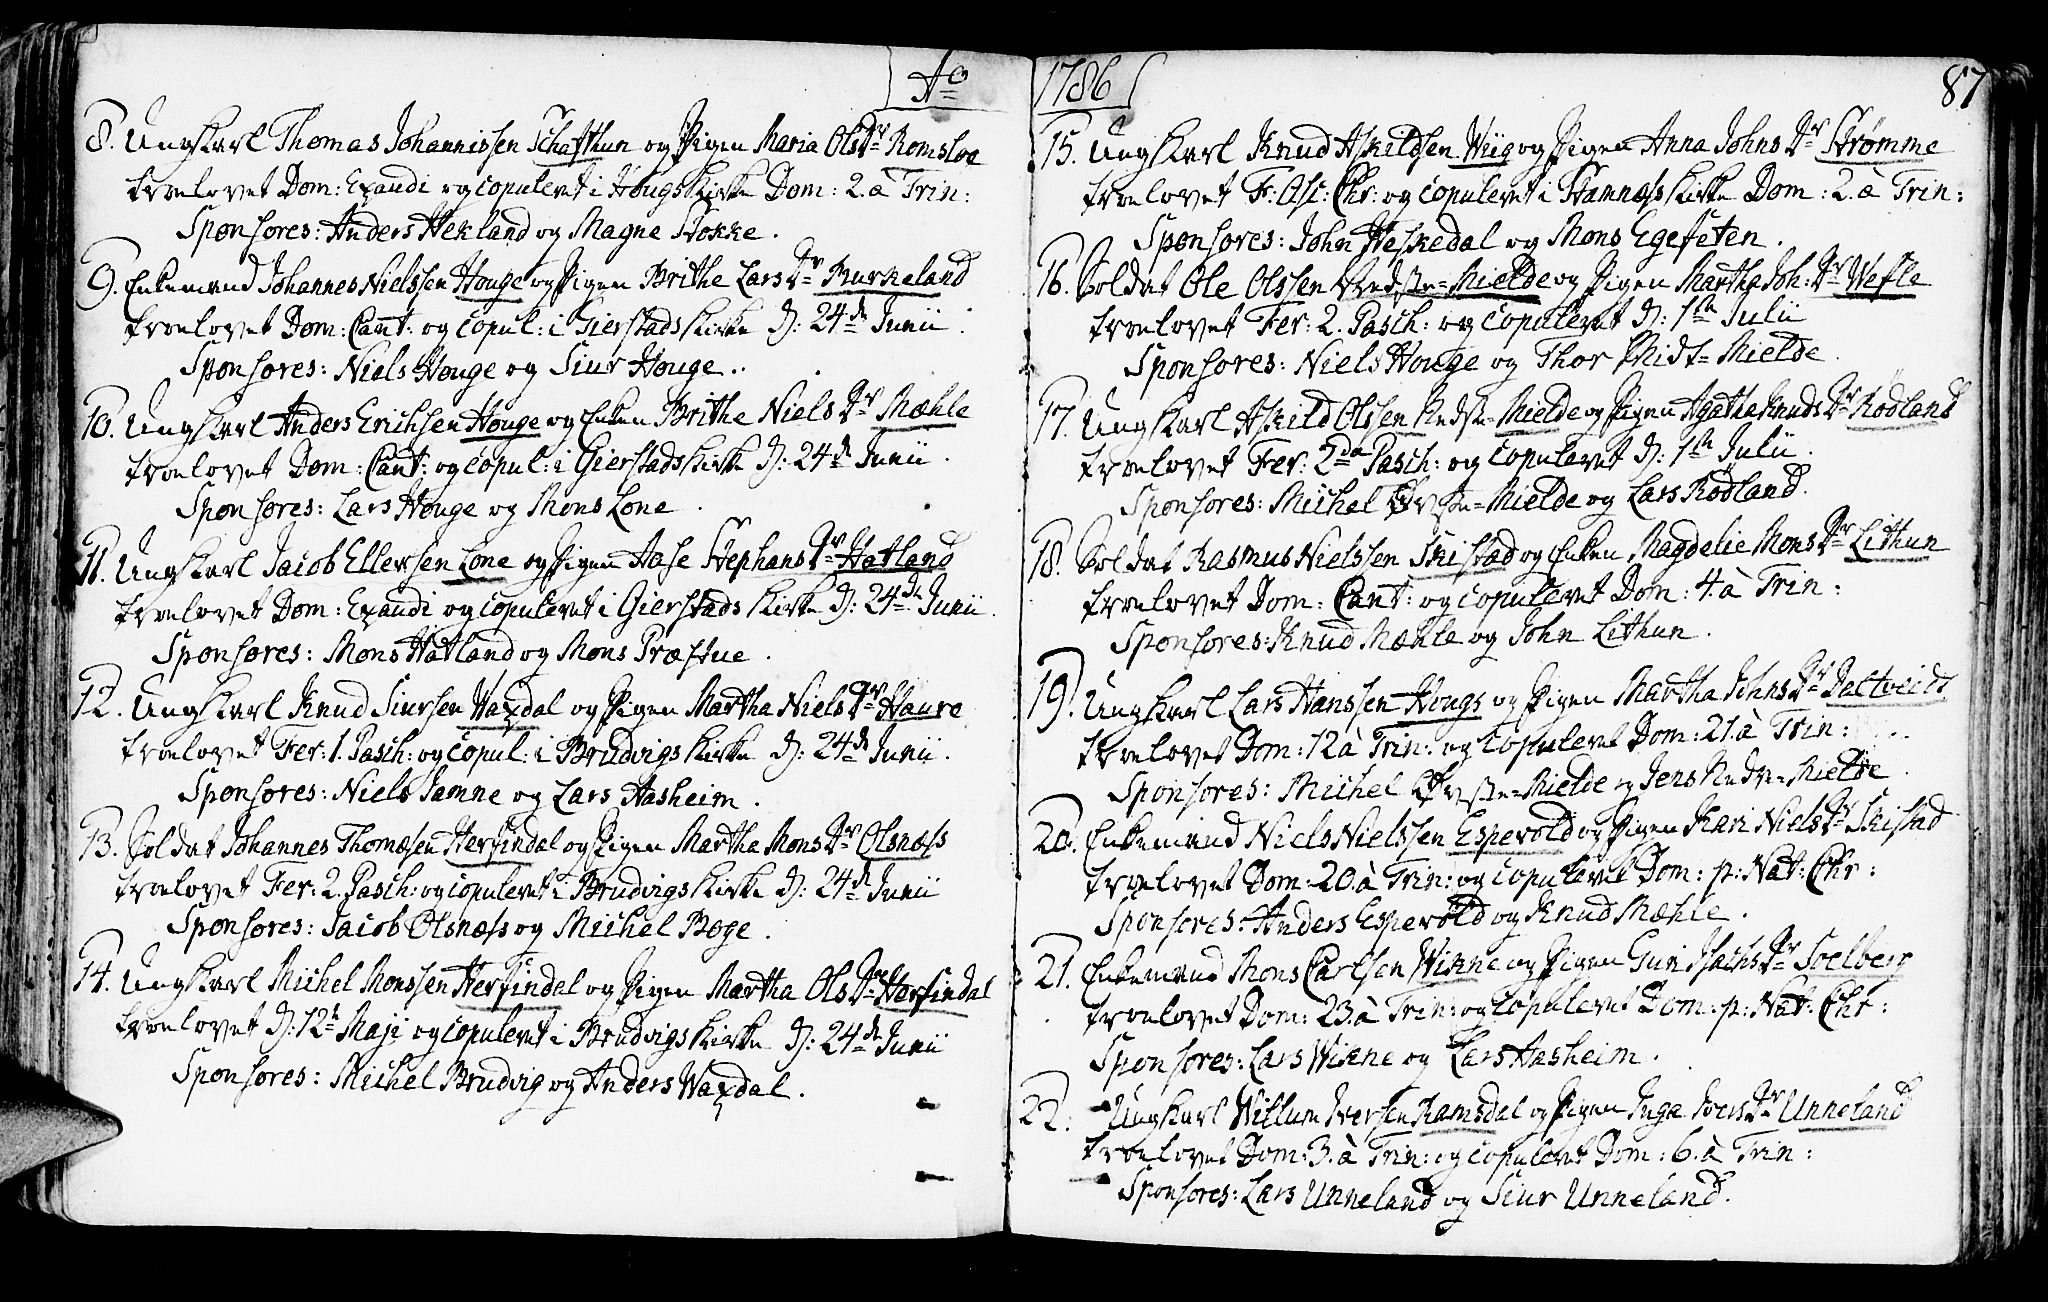 Ao
8. Ungkarl Thomas Johannissen Schafthun og Pigen Maria Olsdr Romsloe
troelovet Dom: Exaudi og copuleret i Hougs Kirke Dom: 2. à Trin:
Sponsores: Anders Hekland og Magne Stokke.
9. Enkemand Johannes Nielssen Houge og Pigen Brithe Larsdr Burkeland
troelovet Dom: Cant: og copul: i Gierstads Kirke d: 24de Junii
Sponsores: Niels Houge og Siur Houge.
10. Ungkarl Anders Erichsen Houge og Enken Brithe Nielsdr Mæhle
troelovet Dom: Cant: og copul: i Gierstads Kirke d: 24de Junii.
Sponsores: Lars Houge og Mons Lone
11. Ungkarl Jacob Ellersen Lone og Pigen Aase Stephansdr Hatland
troelovet Dom: Exaudi og copuleret i Gierstads Kirke d: 24de Junii.
Sponsores: Mons Hatland og Mons Præstue.
12. Ungkarl Knud Siursen Waxdal og Pigen Martha Nielsdr Haure
troelovet Fer: 1. Pasch: og copul: i Brudvigs Kirke d: 24de Junii.
Sponsores: Niels Jamne og Lars Aasheim.
13. Soldat Johannes Thomæsen Herfindal og Pigen Martha Monsdr Olsnæss
troelovet Fer: 2. Pasch: og copuleret i Brudvigs Kirke d: 24de Junii
Sponsores: Jacob Olsnæss og Michel Boge.
14. Ungkarl Michel Monssen Herfindal og Pigen Martha Olsdr Herfindal
troelovet d: 12te Maji og copuleret i Brudvigs Kirke d: 24de Junii
Sponsores: Michel Brudvig og Anders Waxdal.
1786
87
15. Ungkarl Knud Askildsen Wiig og Pigen Anna Johnsdr Strømme
troelovet F: Asc: Chr: og copuleret i Hamnæss Kirke Dom: 2. à Trin:
Sponsores: John Heskedal og Mons Egeseten.
16. Soldat Ole Olssen Nedste-Mielde og Pigen Martha Joh:dr Wefle
troelovet Fer: 2. Pasch: og copuleret d: 1ste Julii
Sponsores: Niels Houge og Thor Midt-Mielde.
17. Ungkarl Askild Olssen Nedste-Mielde og Pigen Agatha Knudsdr Rødland
troelovet Fer: 2da Pasch: og copuleret d: 1ste Julii.
Sponsores: Michel Øvste-Mielde og Lars Rødland.
18. Soldat Rasmus Nielssen Skistad og Enken Magdelie Monsdr Lithun
troelovet Dom: Cant: og copuleret Dom: 4. à Trin:
Sponsores: Knud Mæhle og John Lithun.
19. Ungkarl Lars Hanssen Hougs og Pigen Martha Johnsdr Daltveidt
troelovet Dom: 12 à Trin: og copuleret Dom: 21. à Trin:
Sponsores: Michel Øvste-Mielde og Jens Nedste-Mielde.
20. Enkemand Niels Nielssen Espevold og Pigen Kari Nielsdr Skistad
troelovet Dom: 20. à Trin: og copuleret Dom: p: Nat: Chr:
Sponsores: Anders Espevold og Knud Mæhle.
21. Enkemand Mons Carlsen Wikne og Pigen Guri Isachsdr Soelberg
troelovet Dom: 23. à Trin: og copuleret Dom: p: Nat: Chr:
Sponsores: Lars Wikne og Lars Aasheim.
22. Ungkarl Willum Iversen Ramsdal og Pigen Inga Iversdr Unneland
troelovet Dom: 3. à Trin: og copuleret Dom: 6. à Trin:
Sponsores: Lars Unneland og Siur Unneland.